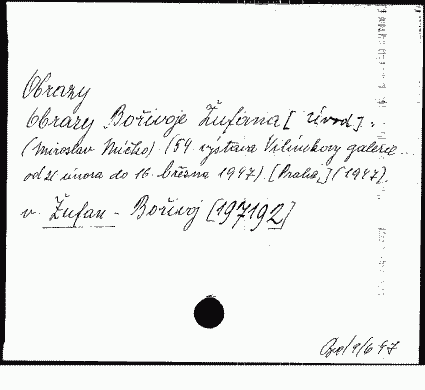 Obrazy
Obrazy Bořivoje Žufana [úvod].
(Miroslav Míčko). (59. výstava Vilímkovy galerie
od 21 února do 16. března 1947) [Praha,] (1947).
v. Žufan - Bořivoj [197192]